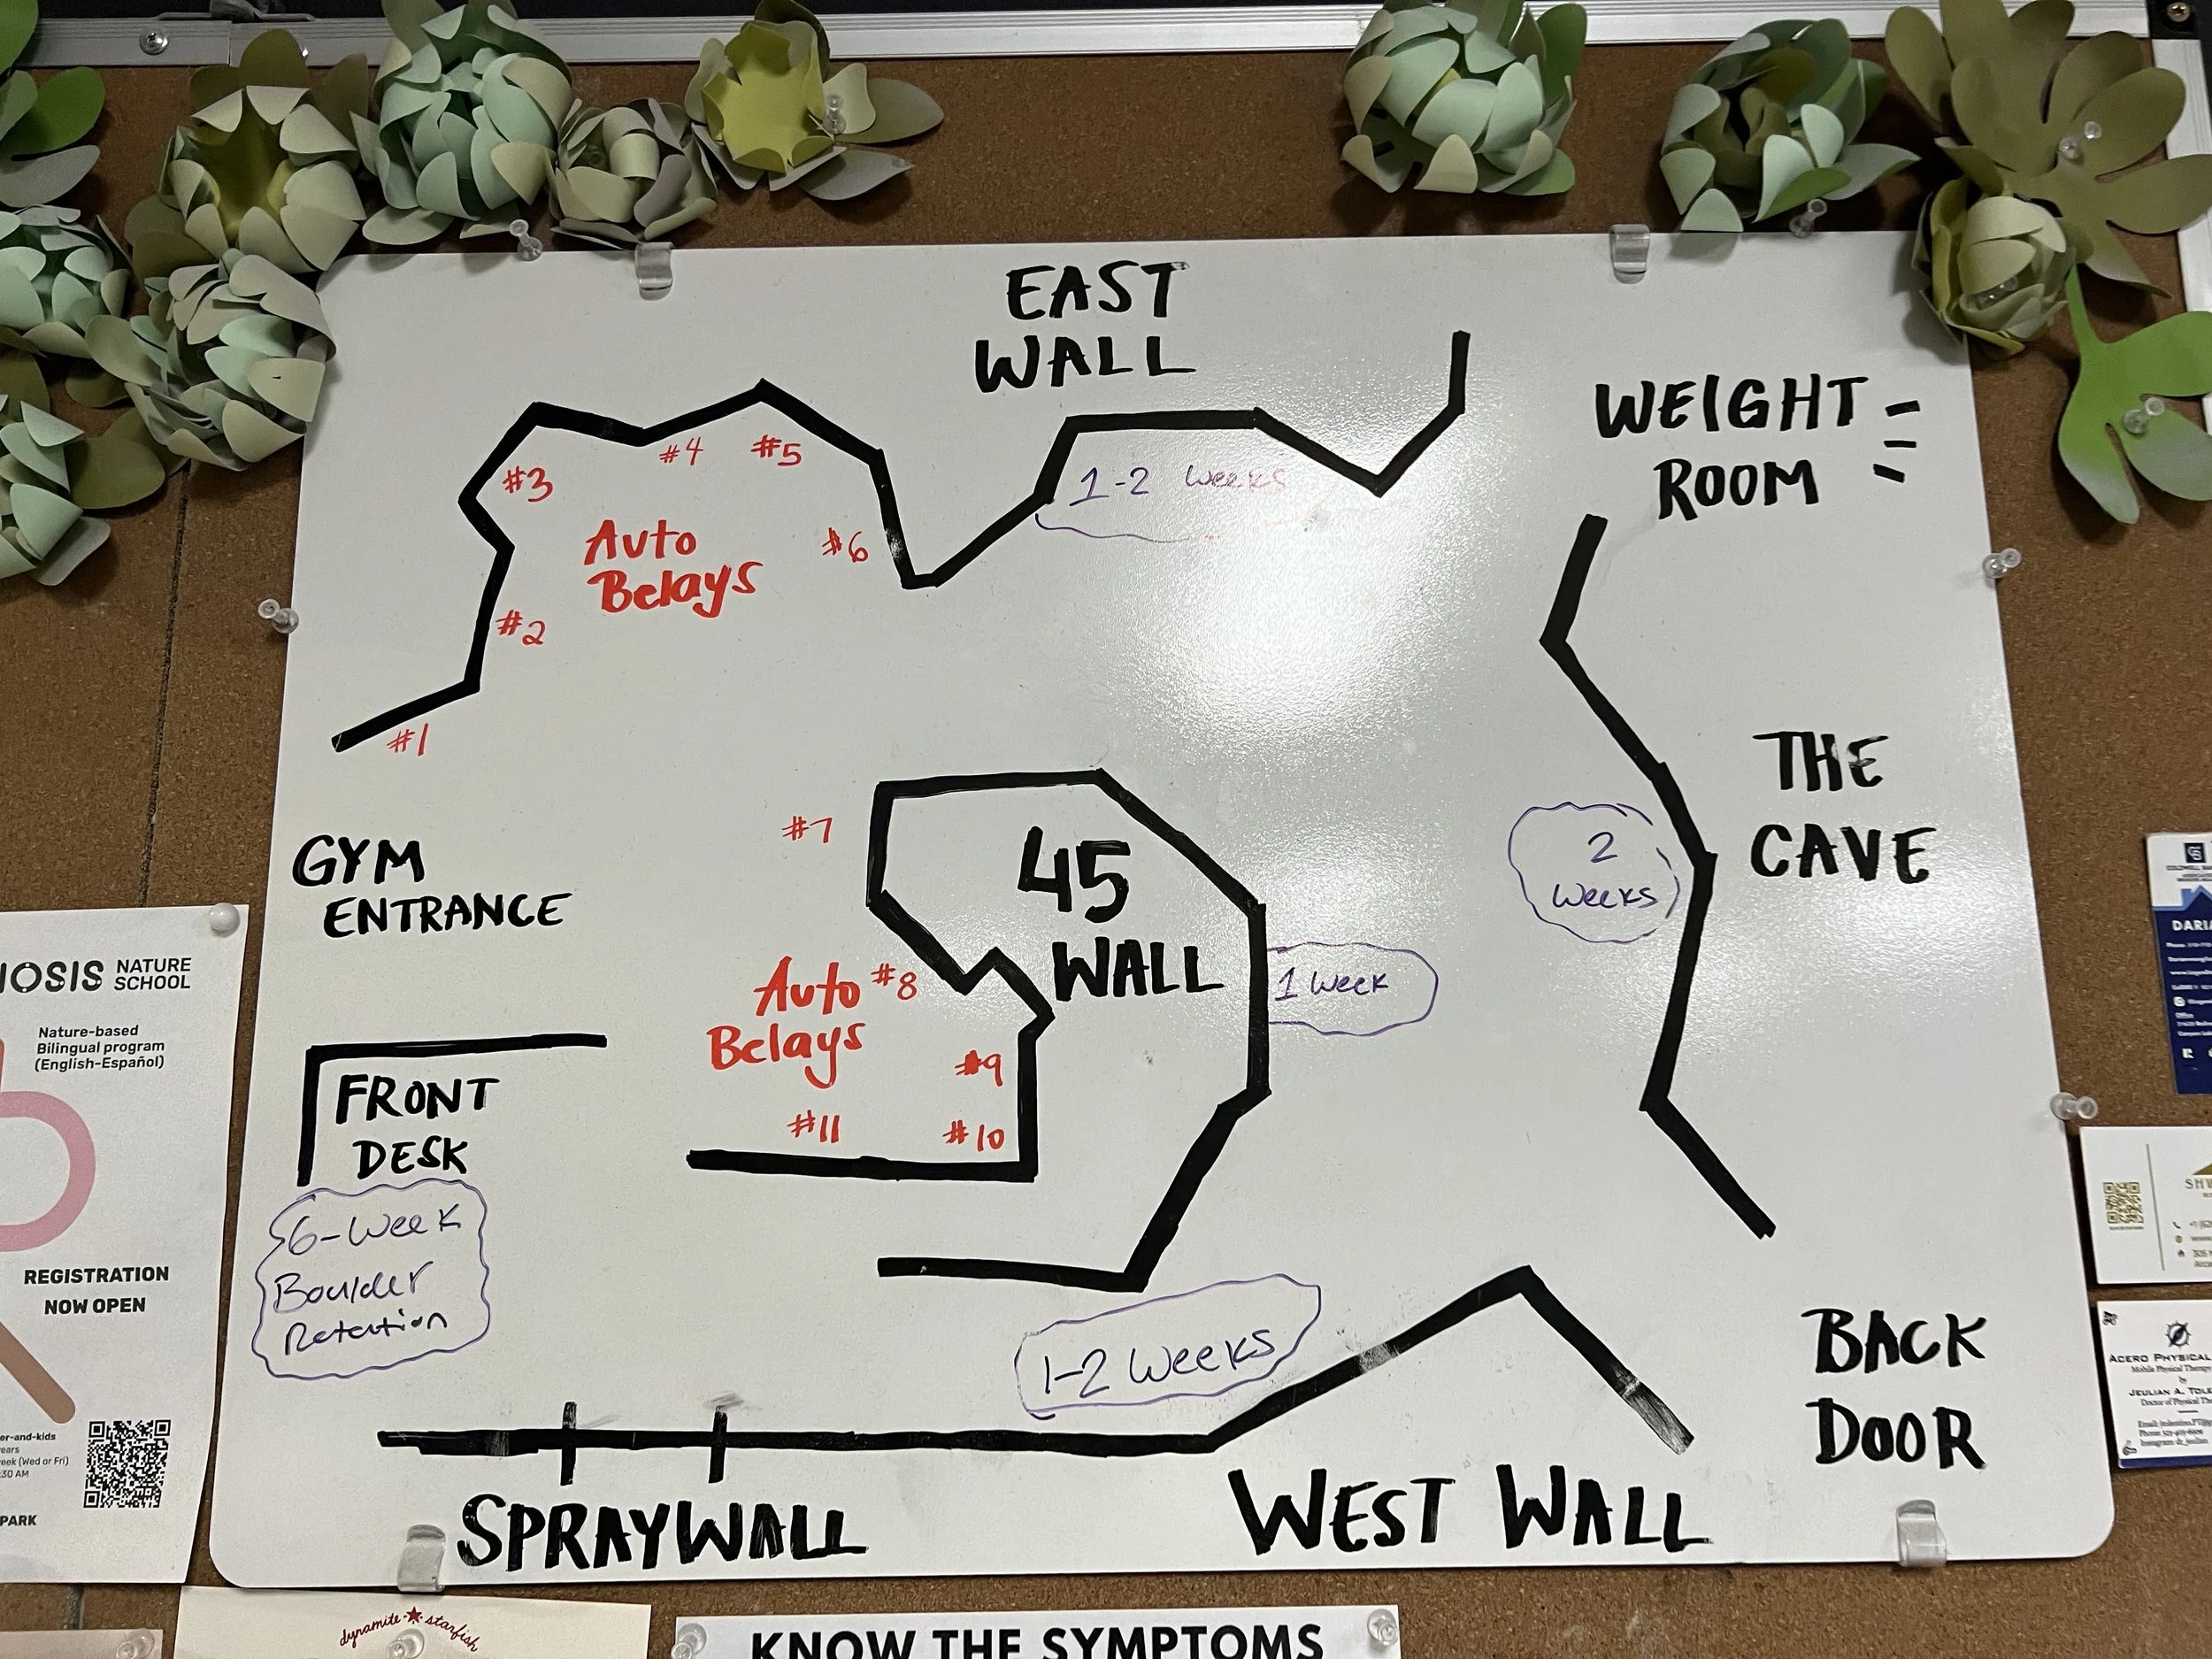 EAST
WALL
WEIGHT
ROOM
1-2 Weeks
#1
#2
#3
#4
#5
#6
Auto
Belays
THE
CAVE
2
Weeks
GYM
ENTRANCE
45
WALL
1 Week
#7
#8
Auto
Belays
#9
#10
#11
FRONT
DESK
6-Week
Boulder
Retention
1-2 Weeks
SPRAYWALL
WEST WALL
BACK
DOOR
NATURE
SCHOOL
Nature-based
Bilingual program
(English-Español)
REGISTRATION
NOW OPEN
er-and-kids
years
eek (Wed or Fri)
:30 AM
PARK
dynamite starfish
KNOW THE SYMPTOMS
DARIA
ACERO PHYSICAL
Mobile Physical Therapy
by
JEULIAN A. TOLE